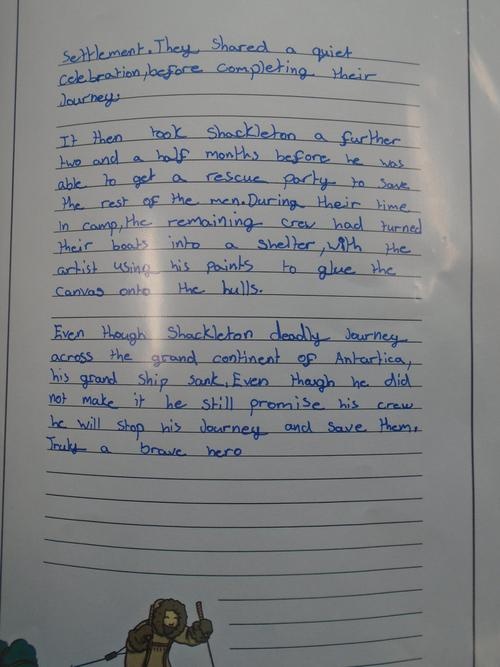 Settlement. They shared a quiet
celebration, before completing their
Journey.
It then took Shackleton a further
two and a half months before he was
able to get a rescue party to save
the rest of the men. During their time
in camp, the remaining crew had turned
their boats into a shelter, with the
artist using his paints to glue the
canvas onto the hulls.
Even though Shackleton deadly Journey
across the grand continent of Antartica,
his grand ship sank. Even though he did
not make it he still promise his crew
he will stop his Journey and save them.
Truly a brave hero